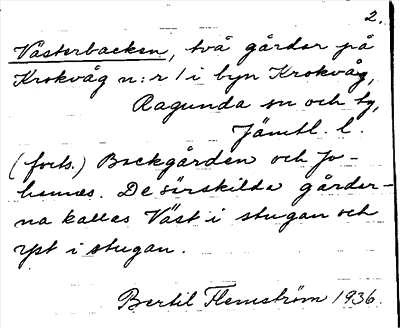 2.
Västerbacken, två gårdar på
Krokvåg n:r 1 i byn Krokvåg,
Ragunda sn och tg,
Jämtl. l.
(forts.) Backgården och Jo-
hannes. De särskilda gårdar-
na kallas Väst i stugan och
yst i stugan.
Bertil Flemström 1936.